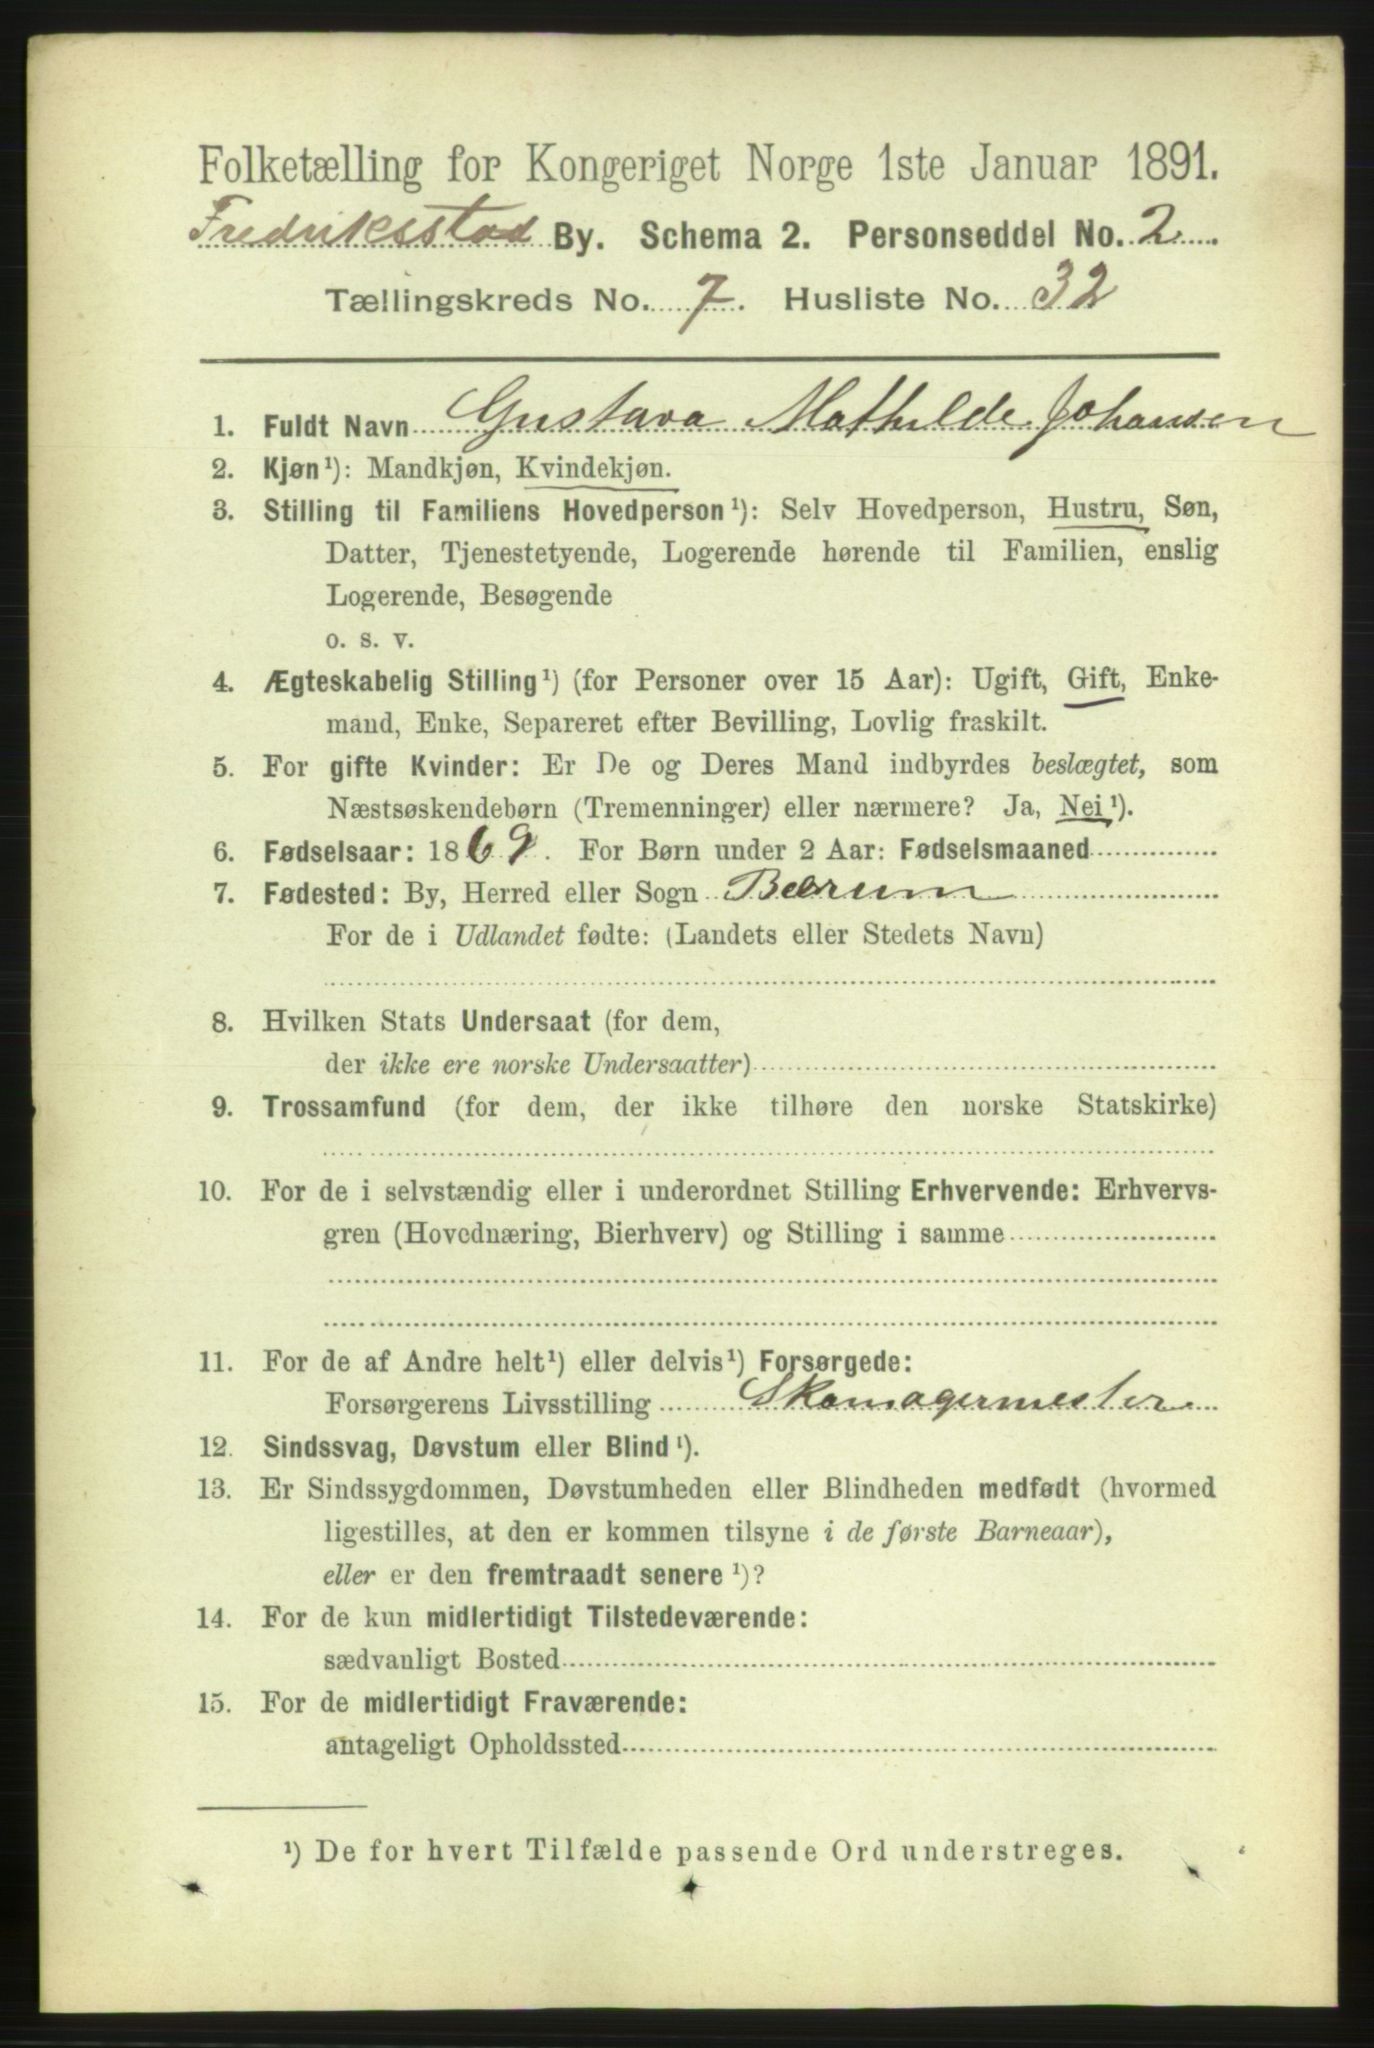 Folketælling for Kongeriget Norge 1ste Januar 1891.
Fredriksstad By. Schema 2. Personseddel No. 2
Tællingskreds No. 7. Husliste No. 32
1. Fuldt Navn Gustava Mathilde Johansen
2. Kjøn¹): Mandkjøn, Kvindekjøn.
3. Stilling til Familiens Hovedperson¹): Selv Hovedperson, Hustru, Søn,
Datter, Tjenestetyende, Logerende hørende til Familien, enslig
Logerende, Besøgende
o. s. v.
4. Ægteskabelig Stilling¹) (for Personer over 15 Aar): Ugift, Gift, Enke-
mand, Enke, Separeret efter Bevilling, Lovlig fraskilt.
5. For gifte Kvinder: Er De og Deres Mand indbyrdes beslægtet, som
Næstsøskendebørn (Tremenninger) eller nærmere? Ja, Nei¹).
6. Fødselsaar: 1869. For Børn under 2 Aar: Fødselsmaaned
7. Fødested: By, Herred eller Sogn Bærum
For de i Udlandet fødte: (Landets eller Stedets Navn)
8. Hvilken Stats Undersaat (for dem,
der ikke ere norske Undersaatter)
9. Trossamfund (for dem, der ikke tilhøre den norske Statskirke)
10. For de i selvstændig eller i underordnet Stilling Erhvervende: Erhvervs-
gren (Hovednæring, Bierhverv) og Stilling i samme
11. For de af Andre helt¹) eller delvis¹) Forsørgede:
Forsørgerens Livsstilling Skomagermester
12. Sindssvag, Døvstum eller Blind¹).
13. Er Sindssygdommen, Døvstumheden eller Blindheden medfødt (hvormed
ligestilles, at den er kommen tilsyne i de første Barneaar),
eller er den fremtraadt senere¹)?
14. For de kun midlertidigt Tilstedeværende:
sædvanligt Bosted
15. For de midlertidigt Fraværende:
antageligt Opholdssted
¹) De for hvert Tilfælde passende Ord understreges.